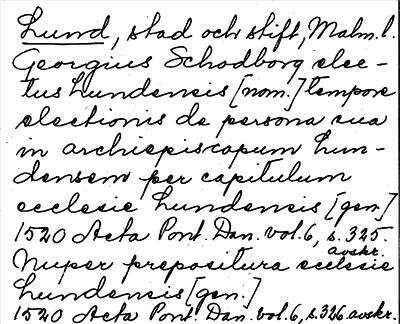 Lund, stad och stift, Malm. l.
Georgius Schodborg elec-
tus Lundensis [nom.] tempore
electionis de persona sua
in archiepiscopum Lun-
densem per capitulum
ecclesie Lundensis [gen.]
1520 Acta Pont. Dan. vol. 6, s. 325.
avskr.
Nuper prepositura ecclesie
Lundensis [gen.]
1520 Acta Pont. Dan. vol. 6, s. 326 avskr.